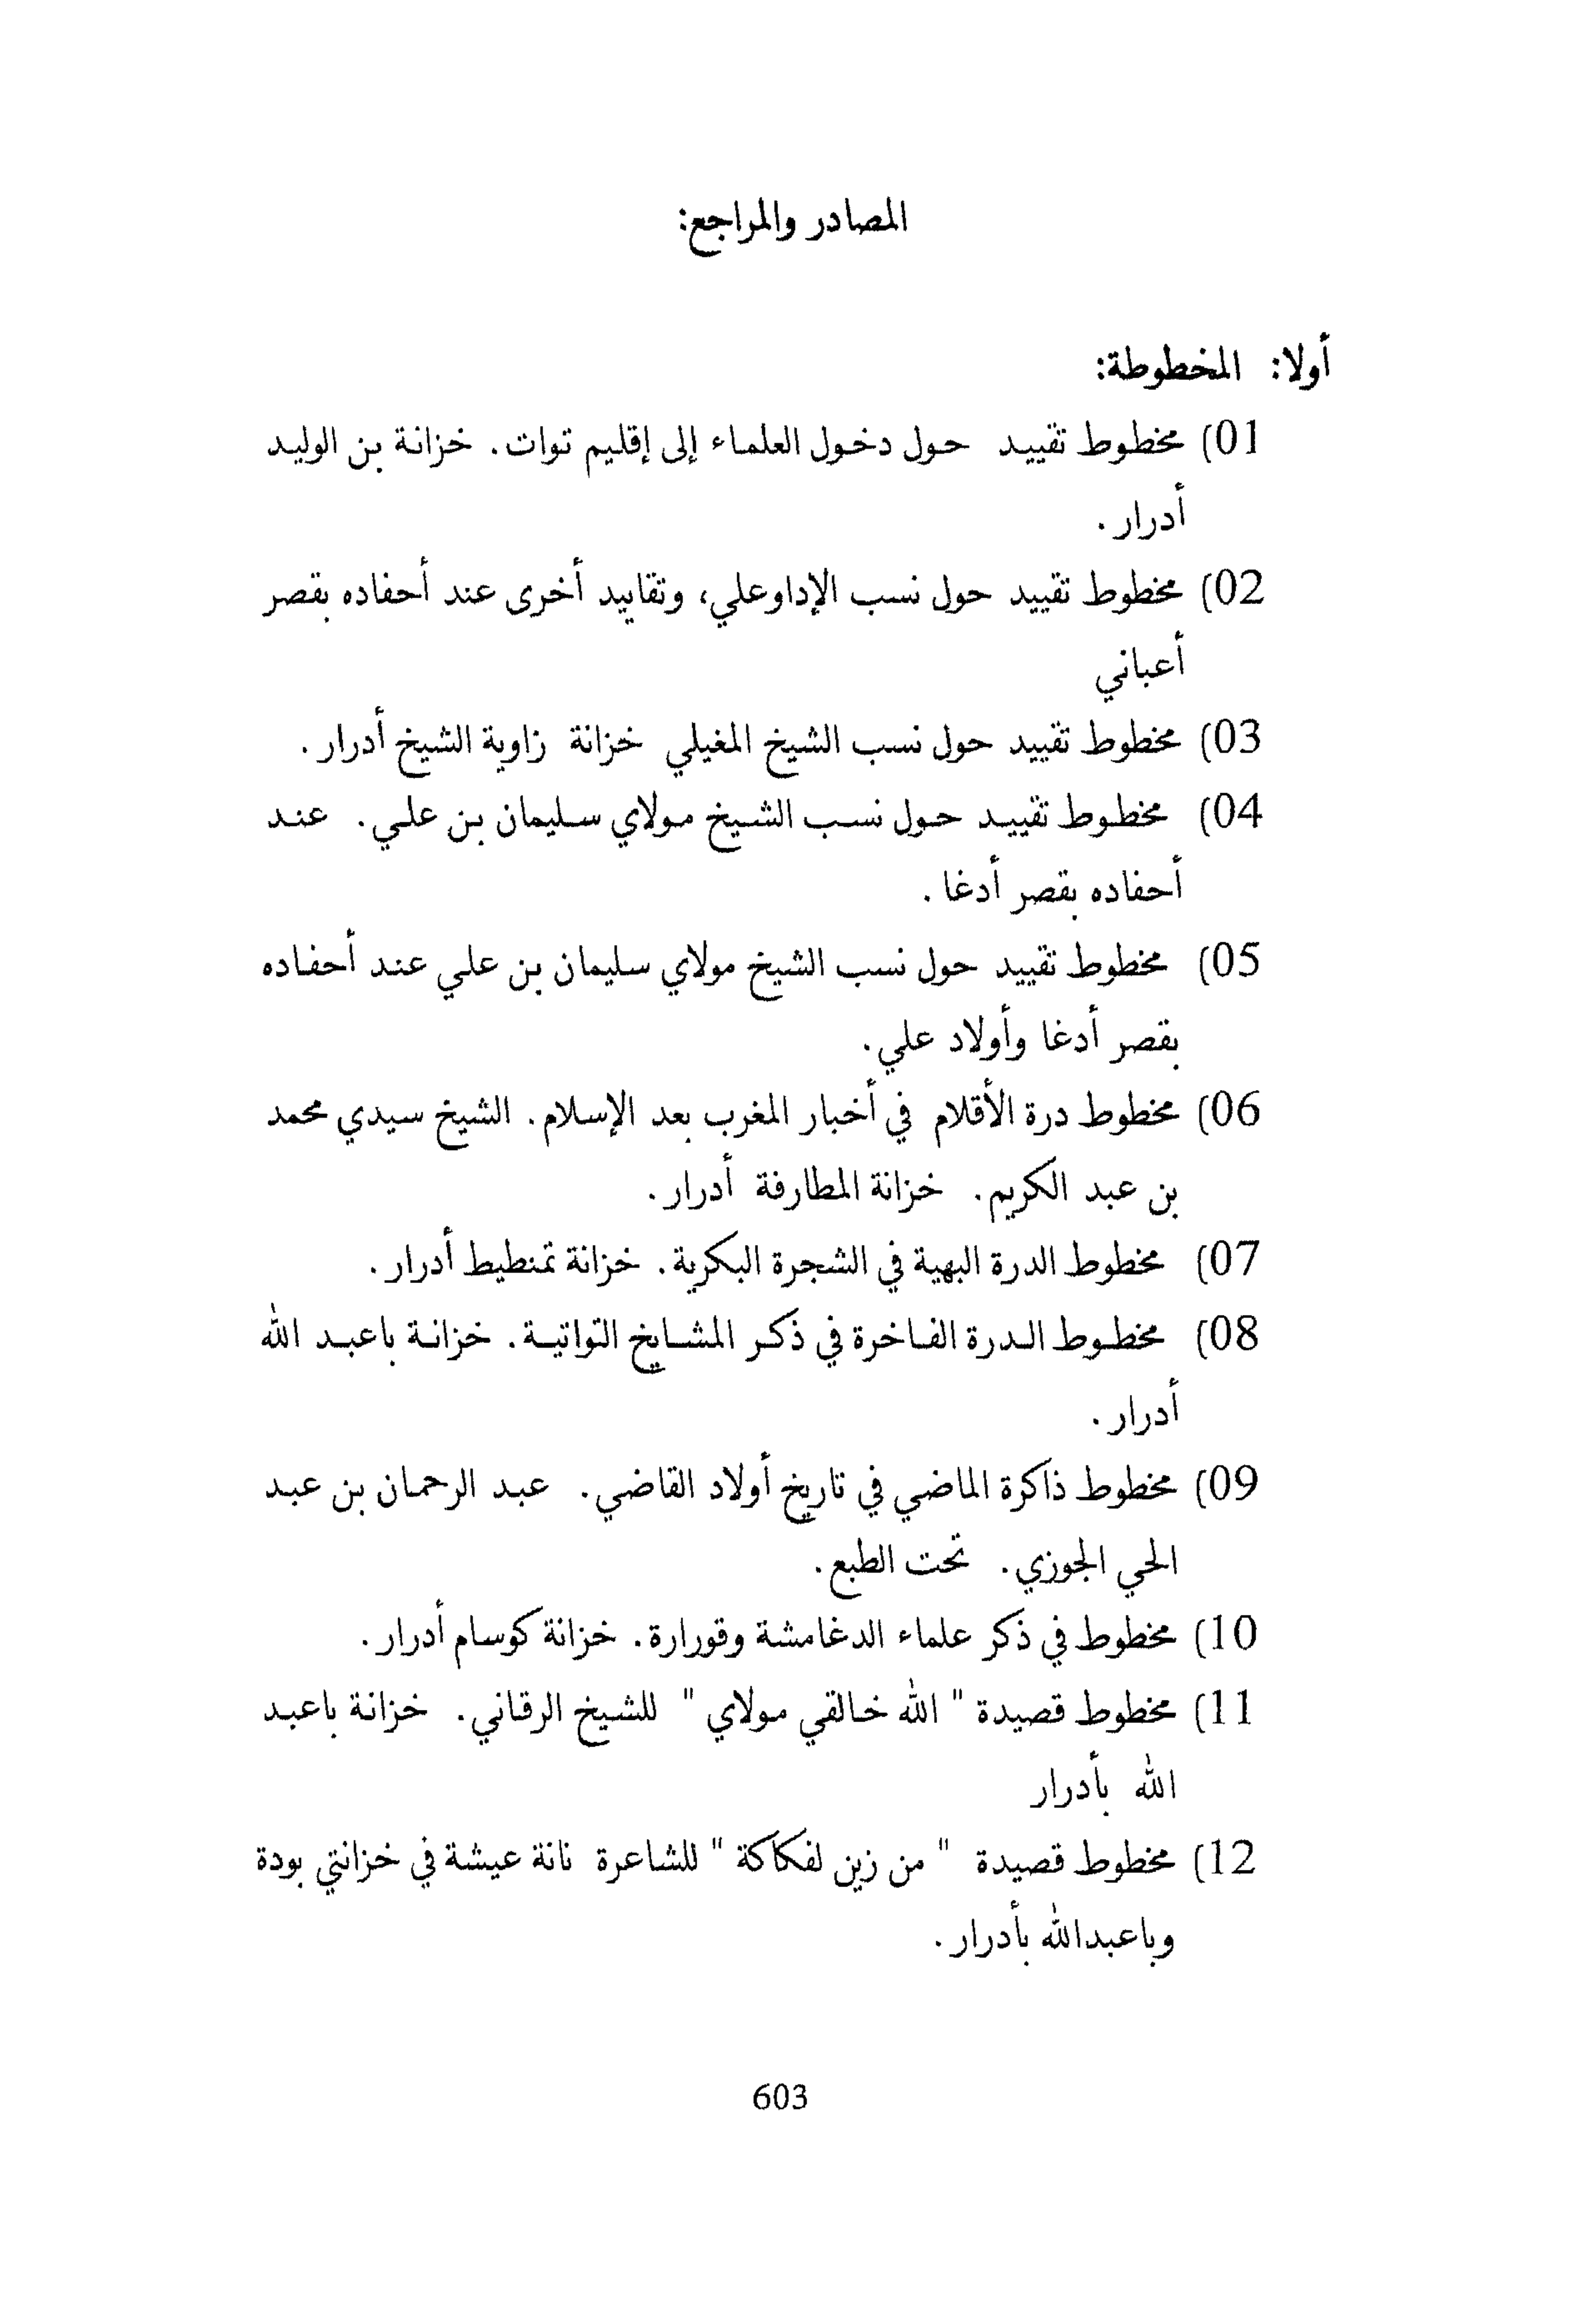 المصادر والمراجع:
أولا: المخطوطة:
01) مخطوط تقييد حول دخول العلماء إلى إقليم توات. خزانة بن الوليد
أدرار.
02) مخطوط تقييد حول نسب الإداوعلي، وتقاييد أخرى عند أحفاده بقصر
أعباني
03) مخطوط تقييد حول نسب الشيخ المغيلي خزانة زاوية الشيخ أدرار.
04) مخطوط تقييد حول نسب الشيخ مولاي سليمان بن علي. عند
أحفاده بقصر أدغا.
05) مخطوط تقييد حول نسب الشيخ مولاي سليمان بن علي عند أحفاده
بقصر أدغا وأولاد علي.
06) مخطوط درة الأقلام في أخبار المغرب بعد الإسلام. الشيخ سيدي محمد
بن عبد الكريم. خزانة المطارفة أدرار.
07) مخطوط الدرة البهية في الشجرة البكرية. خزانة تمنطيط أدرار.
08) مخطوط الدرة الفاخرة في ذكر المشايخ التواتية. خزانة باعبد الله
أدرار.
09) مخطوط ذاكرة الماضي في تاريخ أولاد القاضي. عبد الرحمان بن عبد
الحي الجوزي. تحت الطبع.
10) مخطوط في ذكر علماء الدغامشة وقورارة. خزانة كوسام أدرار.
11) مخطوط قصيدة " الله خالقي مولاي " للشيخ الرقاني. خزانة باعبد
الله بأدرار
12) مخطوط قصيدة " من زين لفكاكة " للشاعرة نانة عيشة في خزانتي بودة
وباعبدالله بأدرار.
603